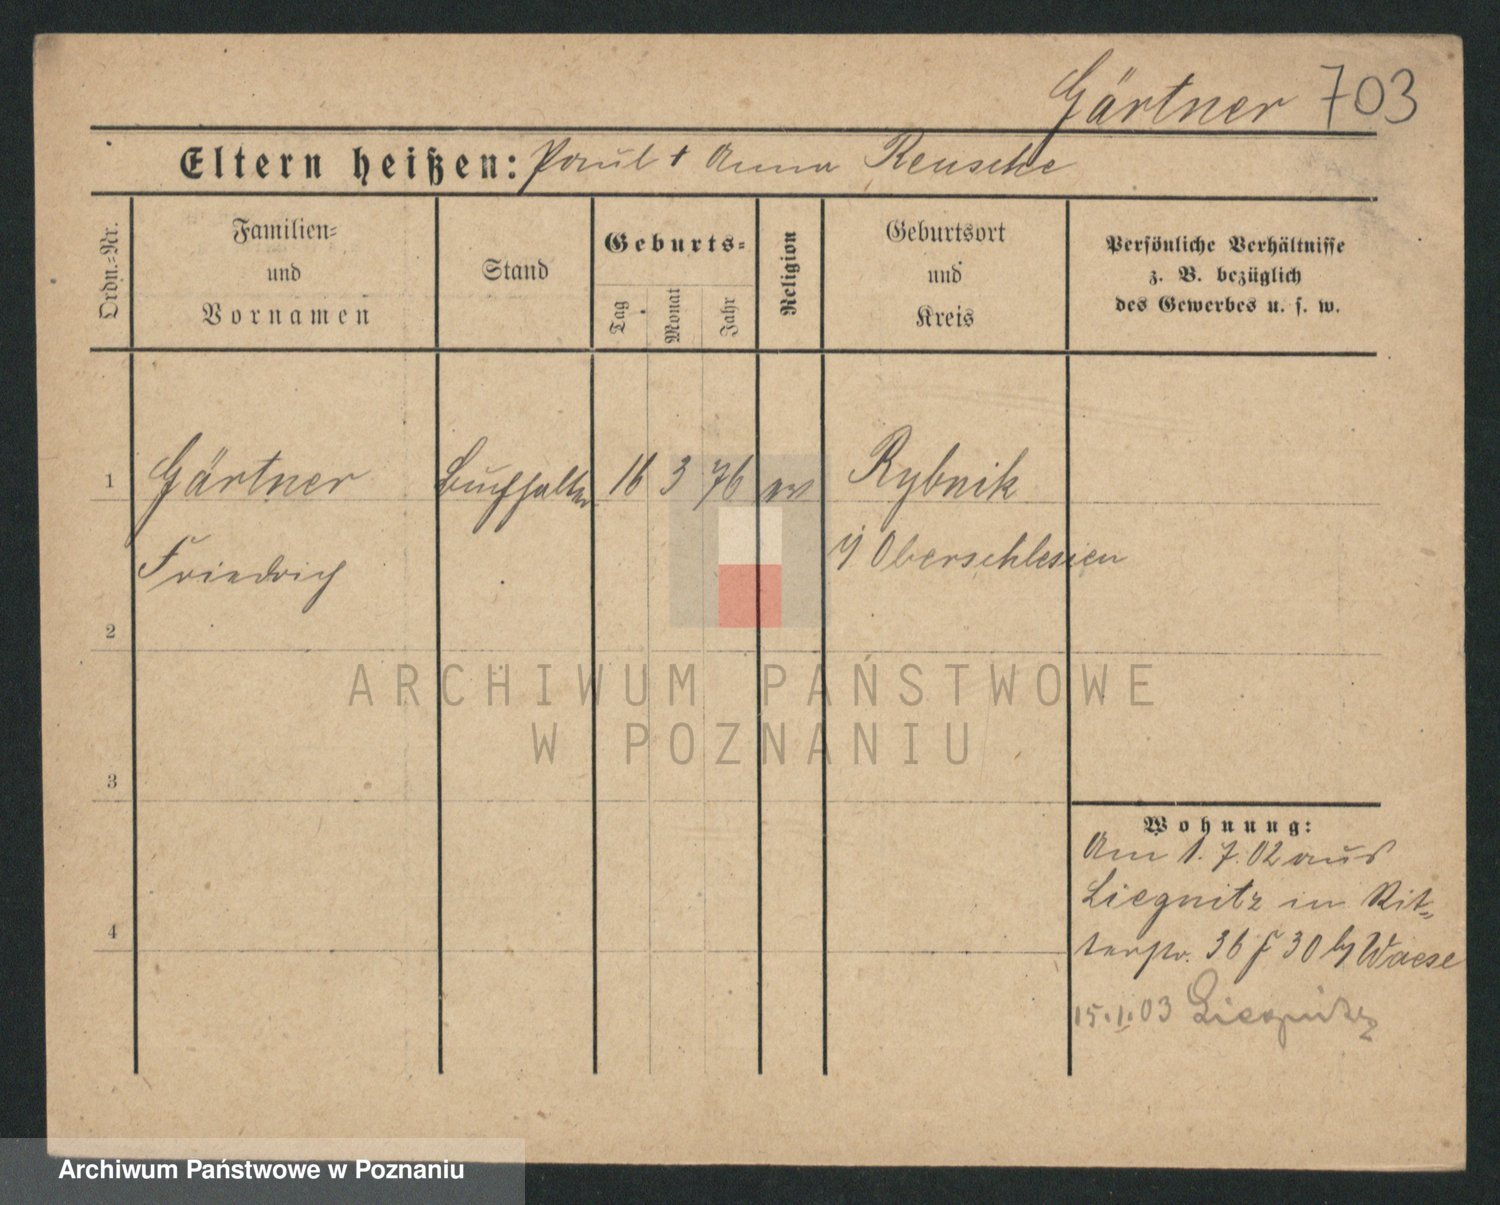 Gärtner 703
Eltern heißen: Paul + Anna Reusche
Ordn.=Nr.
Familien=
und
Vornamen
Stand
Geburts=
Tag
Monat
Jahr
Religion
Geburtsort
und
Kreis
Persönliche Verhältnisse
z. B. bezüglich
des Gewerbes u. s. w.
1 Gärtner Buchhalter 16 3 76 ev Rybnik
Friedrich i/ Oberschlesien
2
ARCHIWUM PAŃSTWOWE
W POZNANIU
3
Wohnung:
Am 1. 7. 02 aus
Liegnitz in Rit=
terstr. 36 30 b/ Waese
4
15. 1. 03 Liegnitz
Archiwum Państwowe w Poznaniu